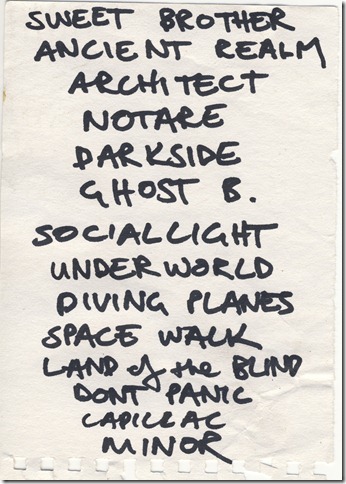 SWEET BROTHER
ANCIENT REALM
ARCHITECT
NOTARE
DARKSIDE
GHOST B.
SOCIALLIGHT
UNDERWORLD
DIVING PLANES
SPACE WALK
LAND of the BLIND
DONT PANIC
CADILLAC
MINOR